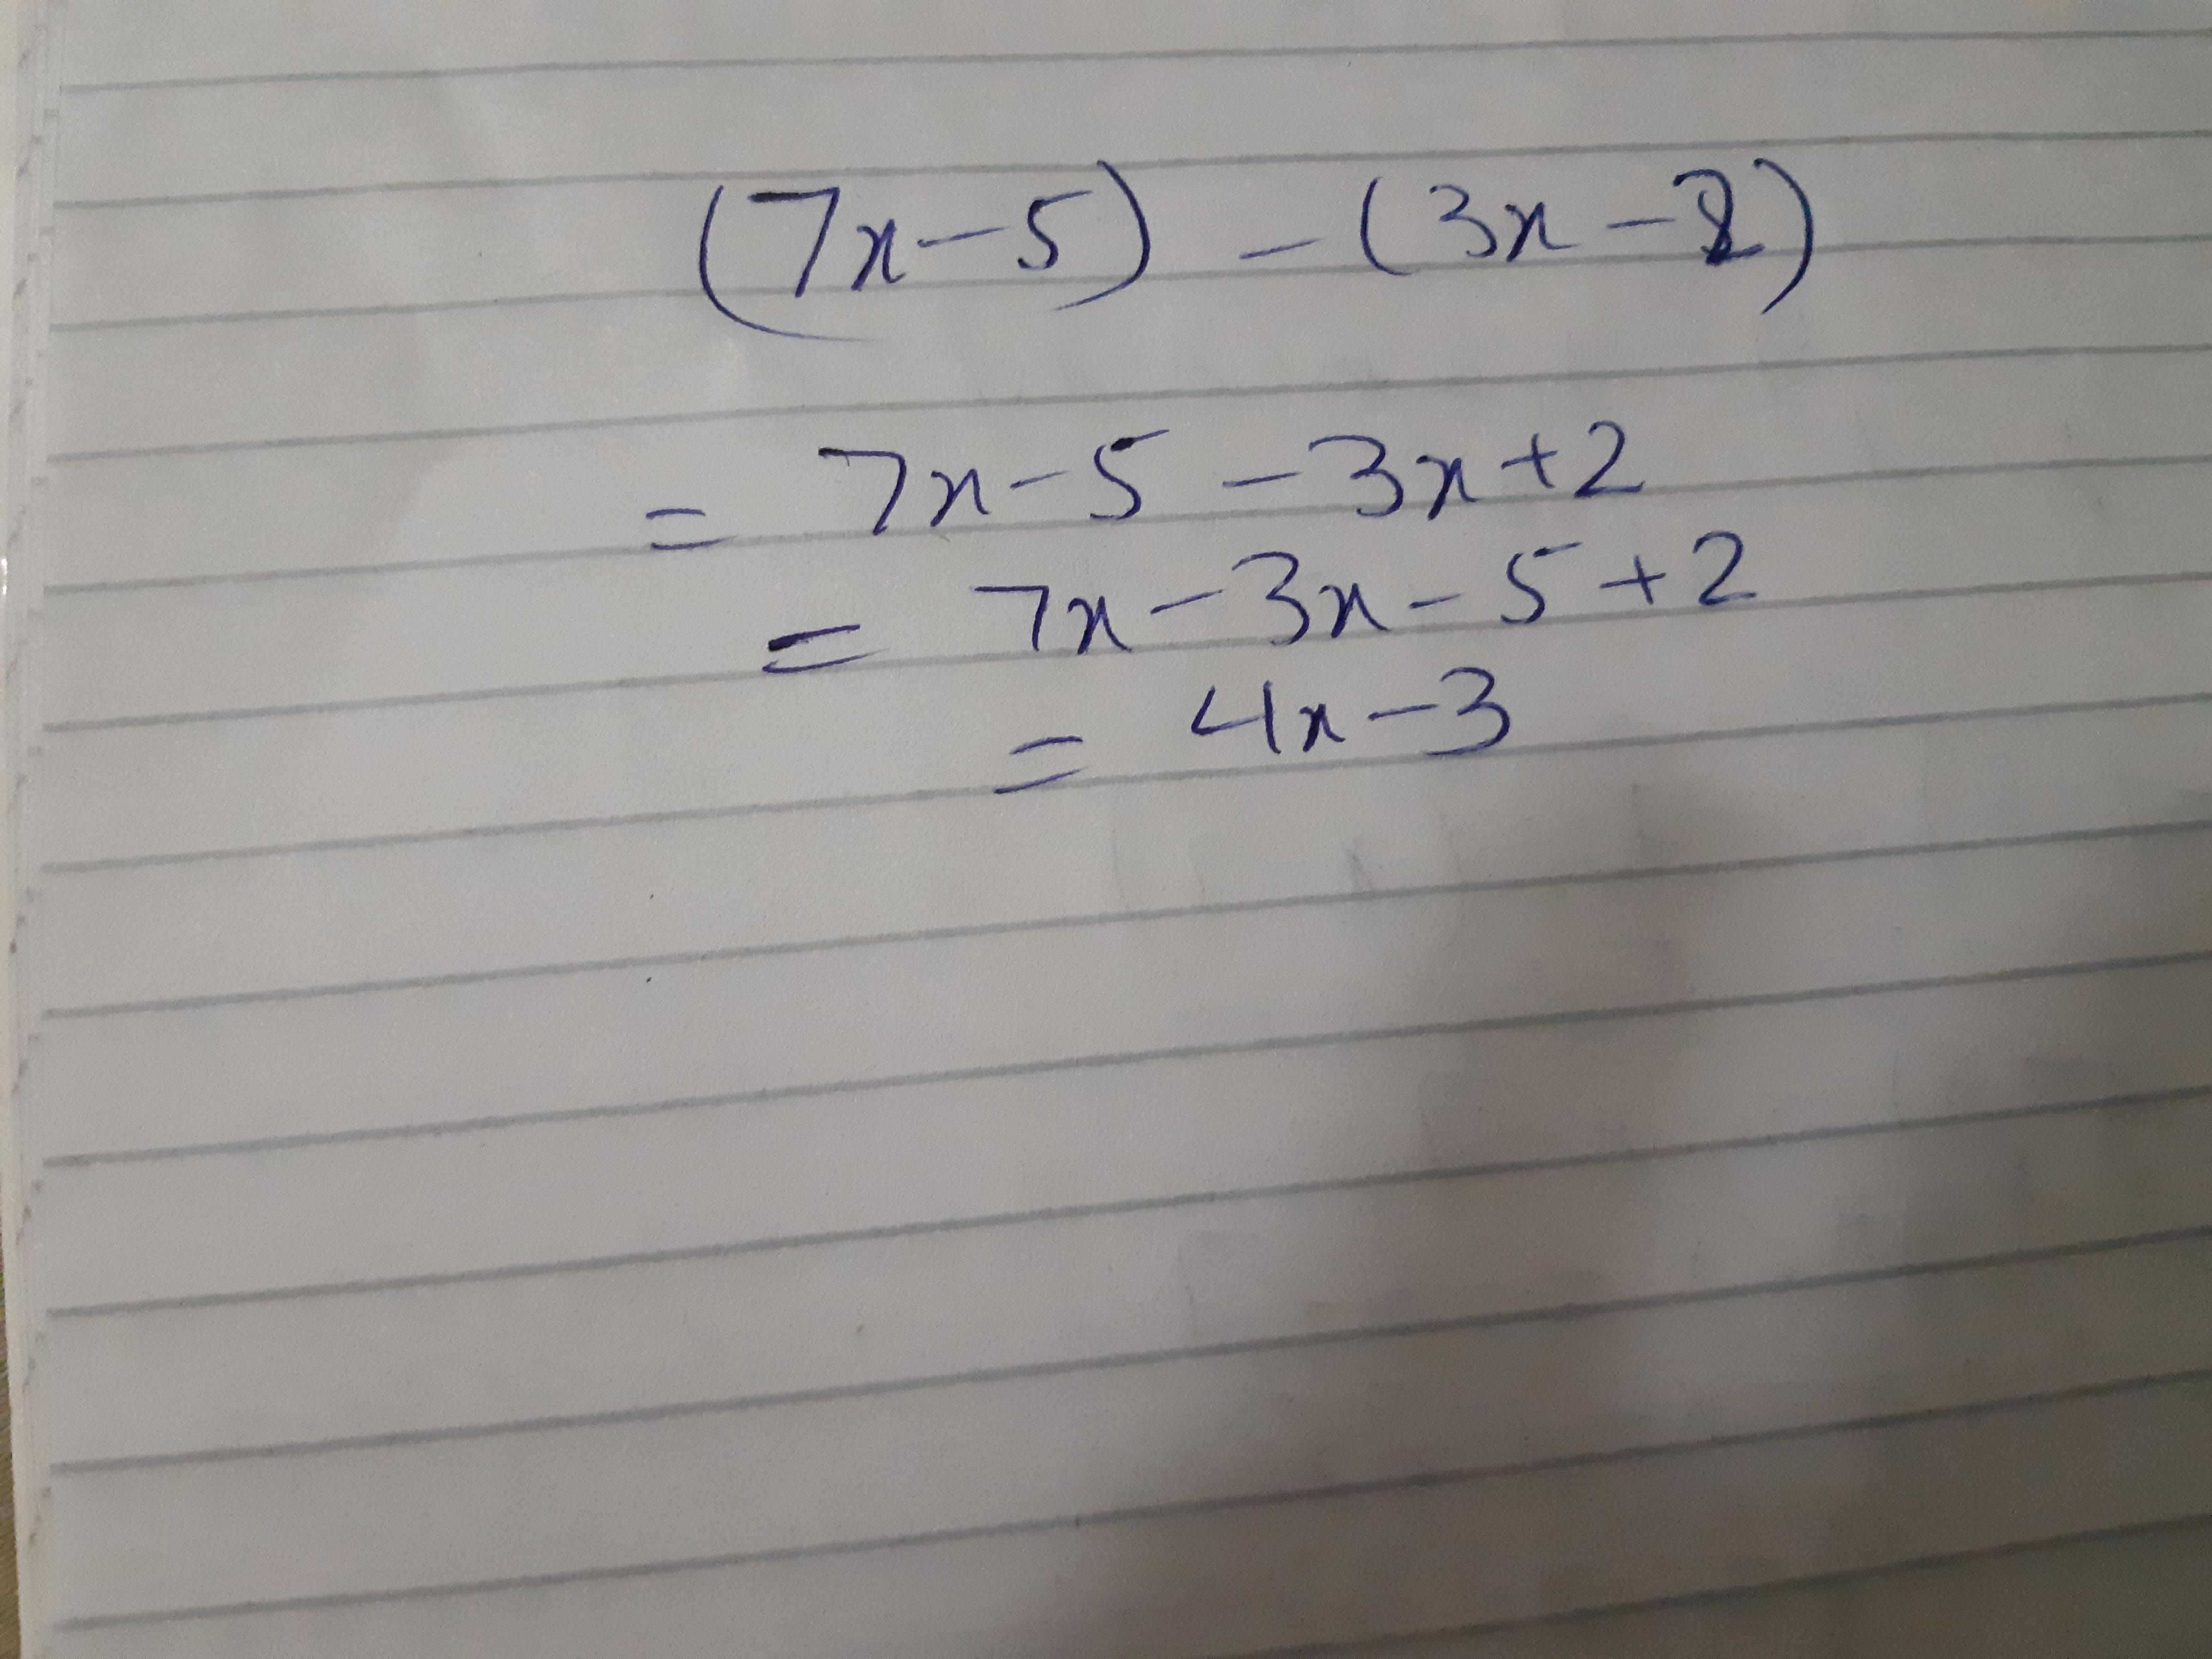 (7x-5) - (3x-2)
= 7x-5 -3x+2
= 7x-3x-5+2
= 4x-3